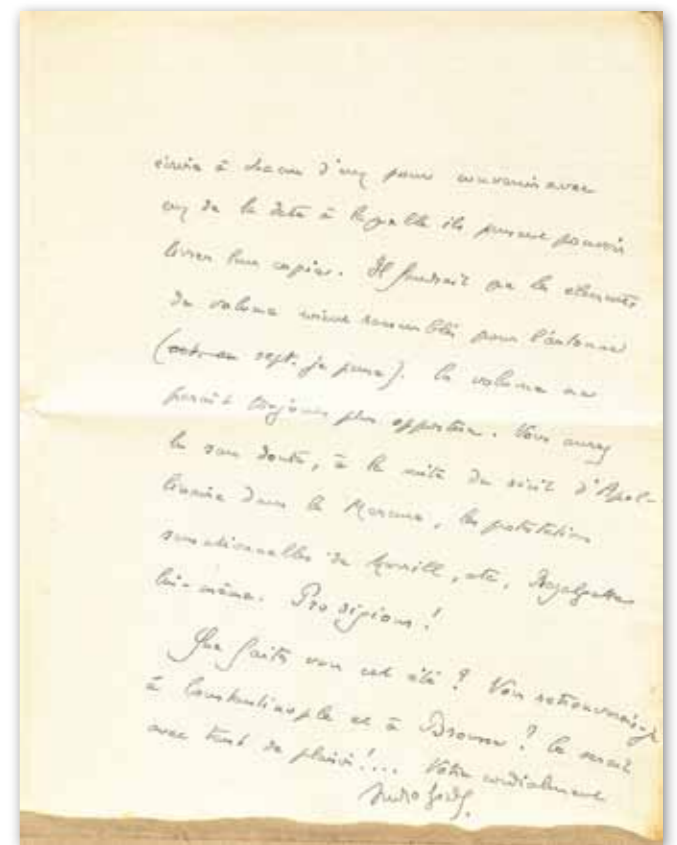 écrire à chacun d'eux pour convenir avec
eux de la date à laquelle ils pensent pouvoir
livrer leur copie. Il faudrait que les éléments
du volume soient rassemblés pour l'automne
(sept. je pense). Ce volume me
paraît toujours plus opportun. Vous aurez
lu sans doute, à la suite du récit d'Apol-
linaire dans le Mercure, les protestations
sensationnelles de Merrill, etc,
lui-même. Prodigieux!
Que faites vous cet été? Vous retrouverai-je
à Constantinople et à Brousse? Ce serait
avec tant de plaisir!... Votre cordialement
André Gide.